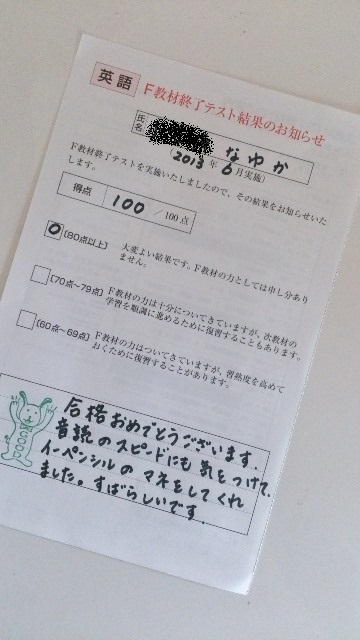 英語 F教材終了テスト結果のお知らせ
氏名 なゆか
(2013年6月実施)
F教材終了テストを実施いたしましたので、その結果をお知らせいた
します。
得点 100 / 100点
0 〔80点以上〕 大変よい結果です。F教材の力としては申し分あり
ません。
〔70点~79点〕 F教材の力は十分についてきていますが、次教材の
学習を順調に進めるために復習することもあります。
〔60点~69点〕 F教材の力はついてきていますが、習熟度を高めて
おくために復習することがあります。
合格おめでとうございます.
音読のスピードにも気をつけて、
イーペンシルのマネをしてくれ
ました。すばらしいです.